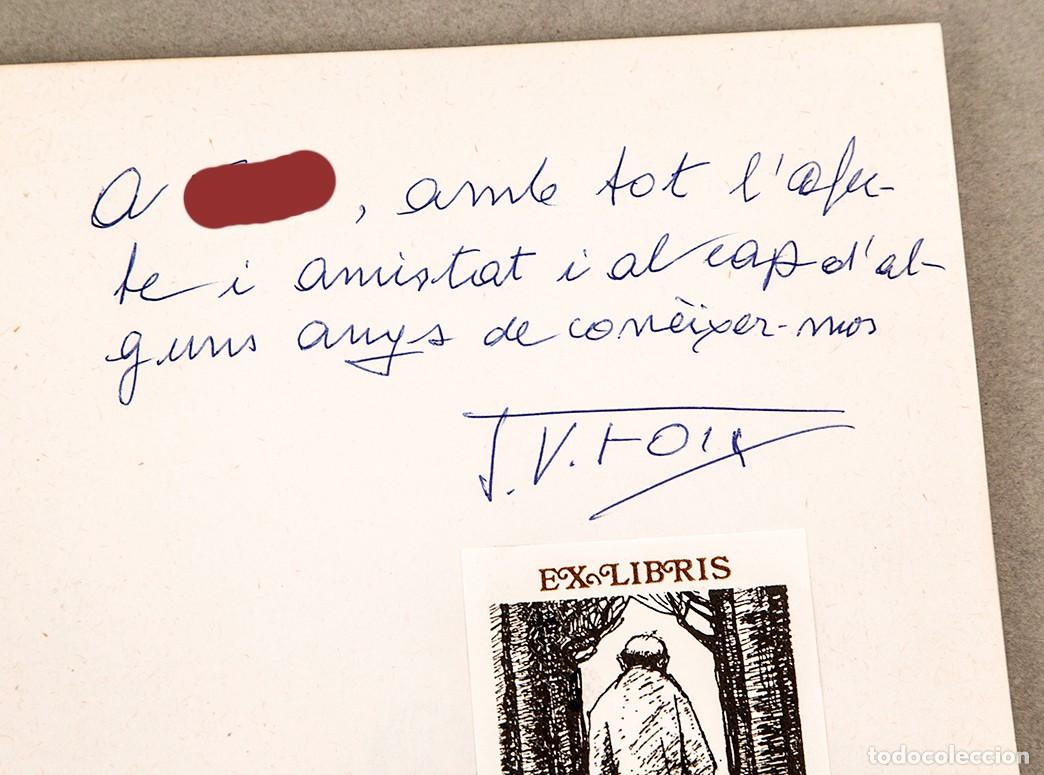 A , amb tot l'afec-
te i amistat i al cap d'al-
guns anys de conèixer-nos
J.V. FOIX
EX-LIBRIS
todocoleccion